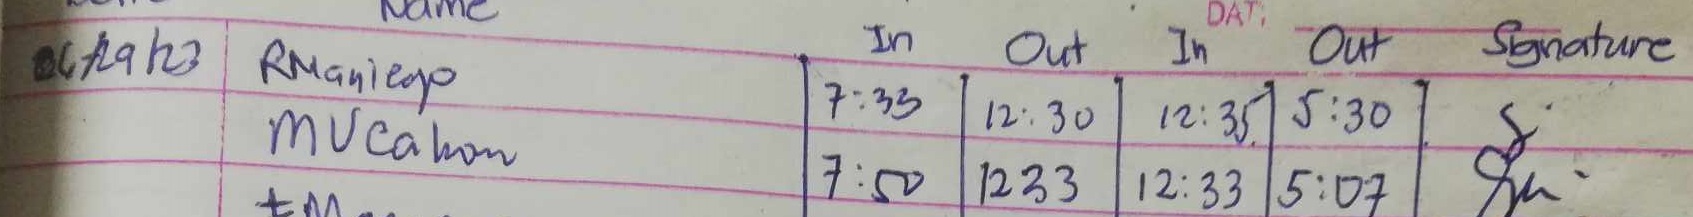 Name In Out In Out Signature
DAT:
RManiego 7:33 12:30 12:35 5:30
MVCahon 7:50 1233 12:33 5:07